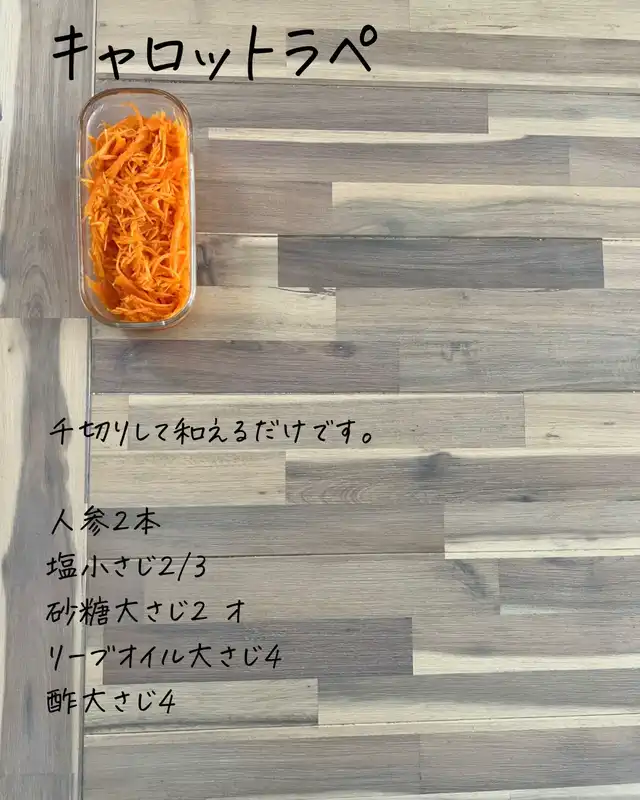 キャロットラペ
千切りして和えるだけです。
人参2本
塩小さじ2/3
砂糖大さじ2 オ
リーブオイル大さじ4
酢大さじ4